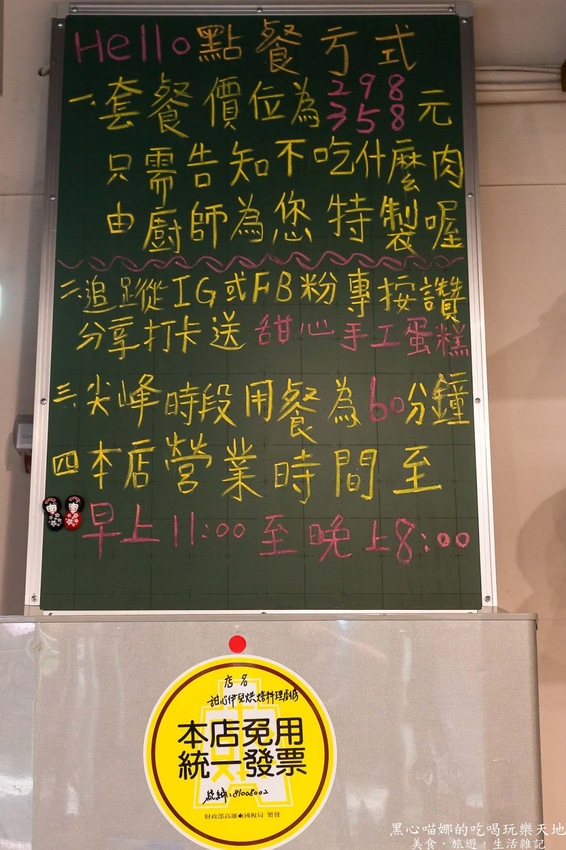 Hello 點餐方式
一、套餐價位為298 358元
只需告知不吃什麼肉
由廚師為您特製喔
二、追蹤IG或FB粉專按讚
分享打卡送甜心手工蛋糕
三、尖峰時段用餐為60分鐘
四、本店營業時間至
早上11:00至晚上8:00
店名
甜心伊兒烘焙料理廚房
本店免用
統一發票
統編:81008002
財政部高雄國稅局 製發
黑心喵娜的吃喝玩樂天地
美食·旅遊·生活雜記